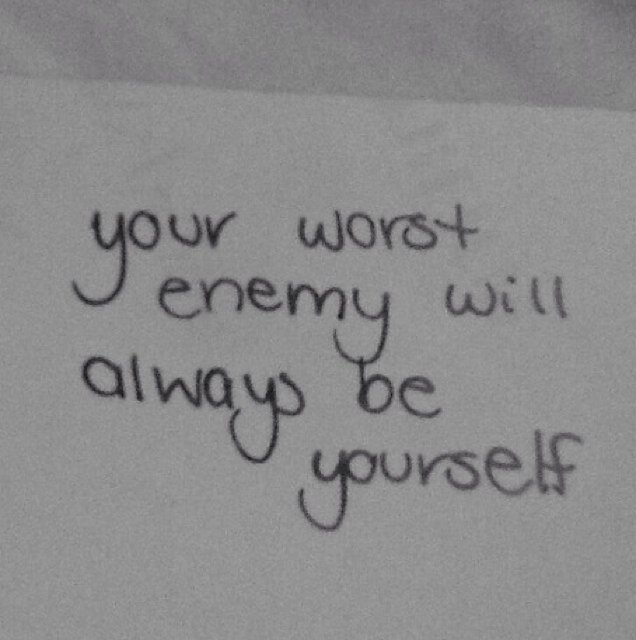 your worst
enemy will
always be
yourself